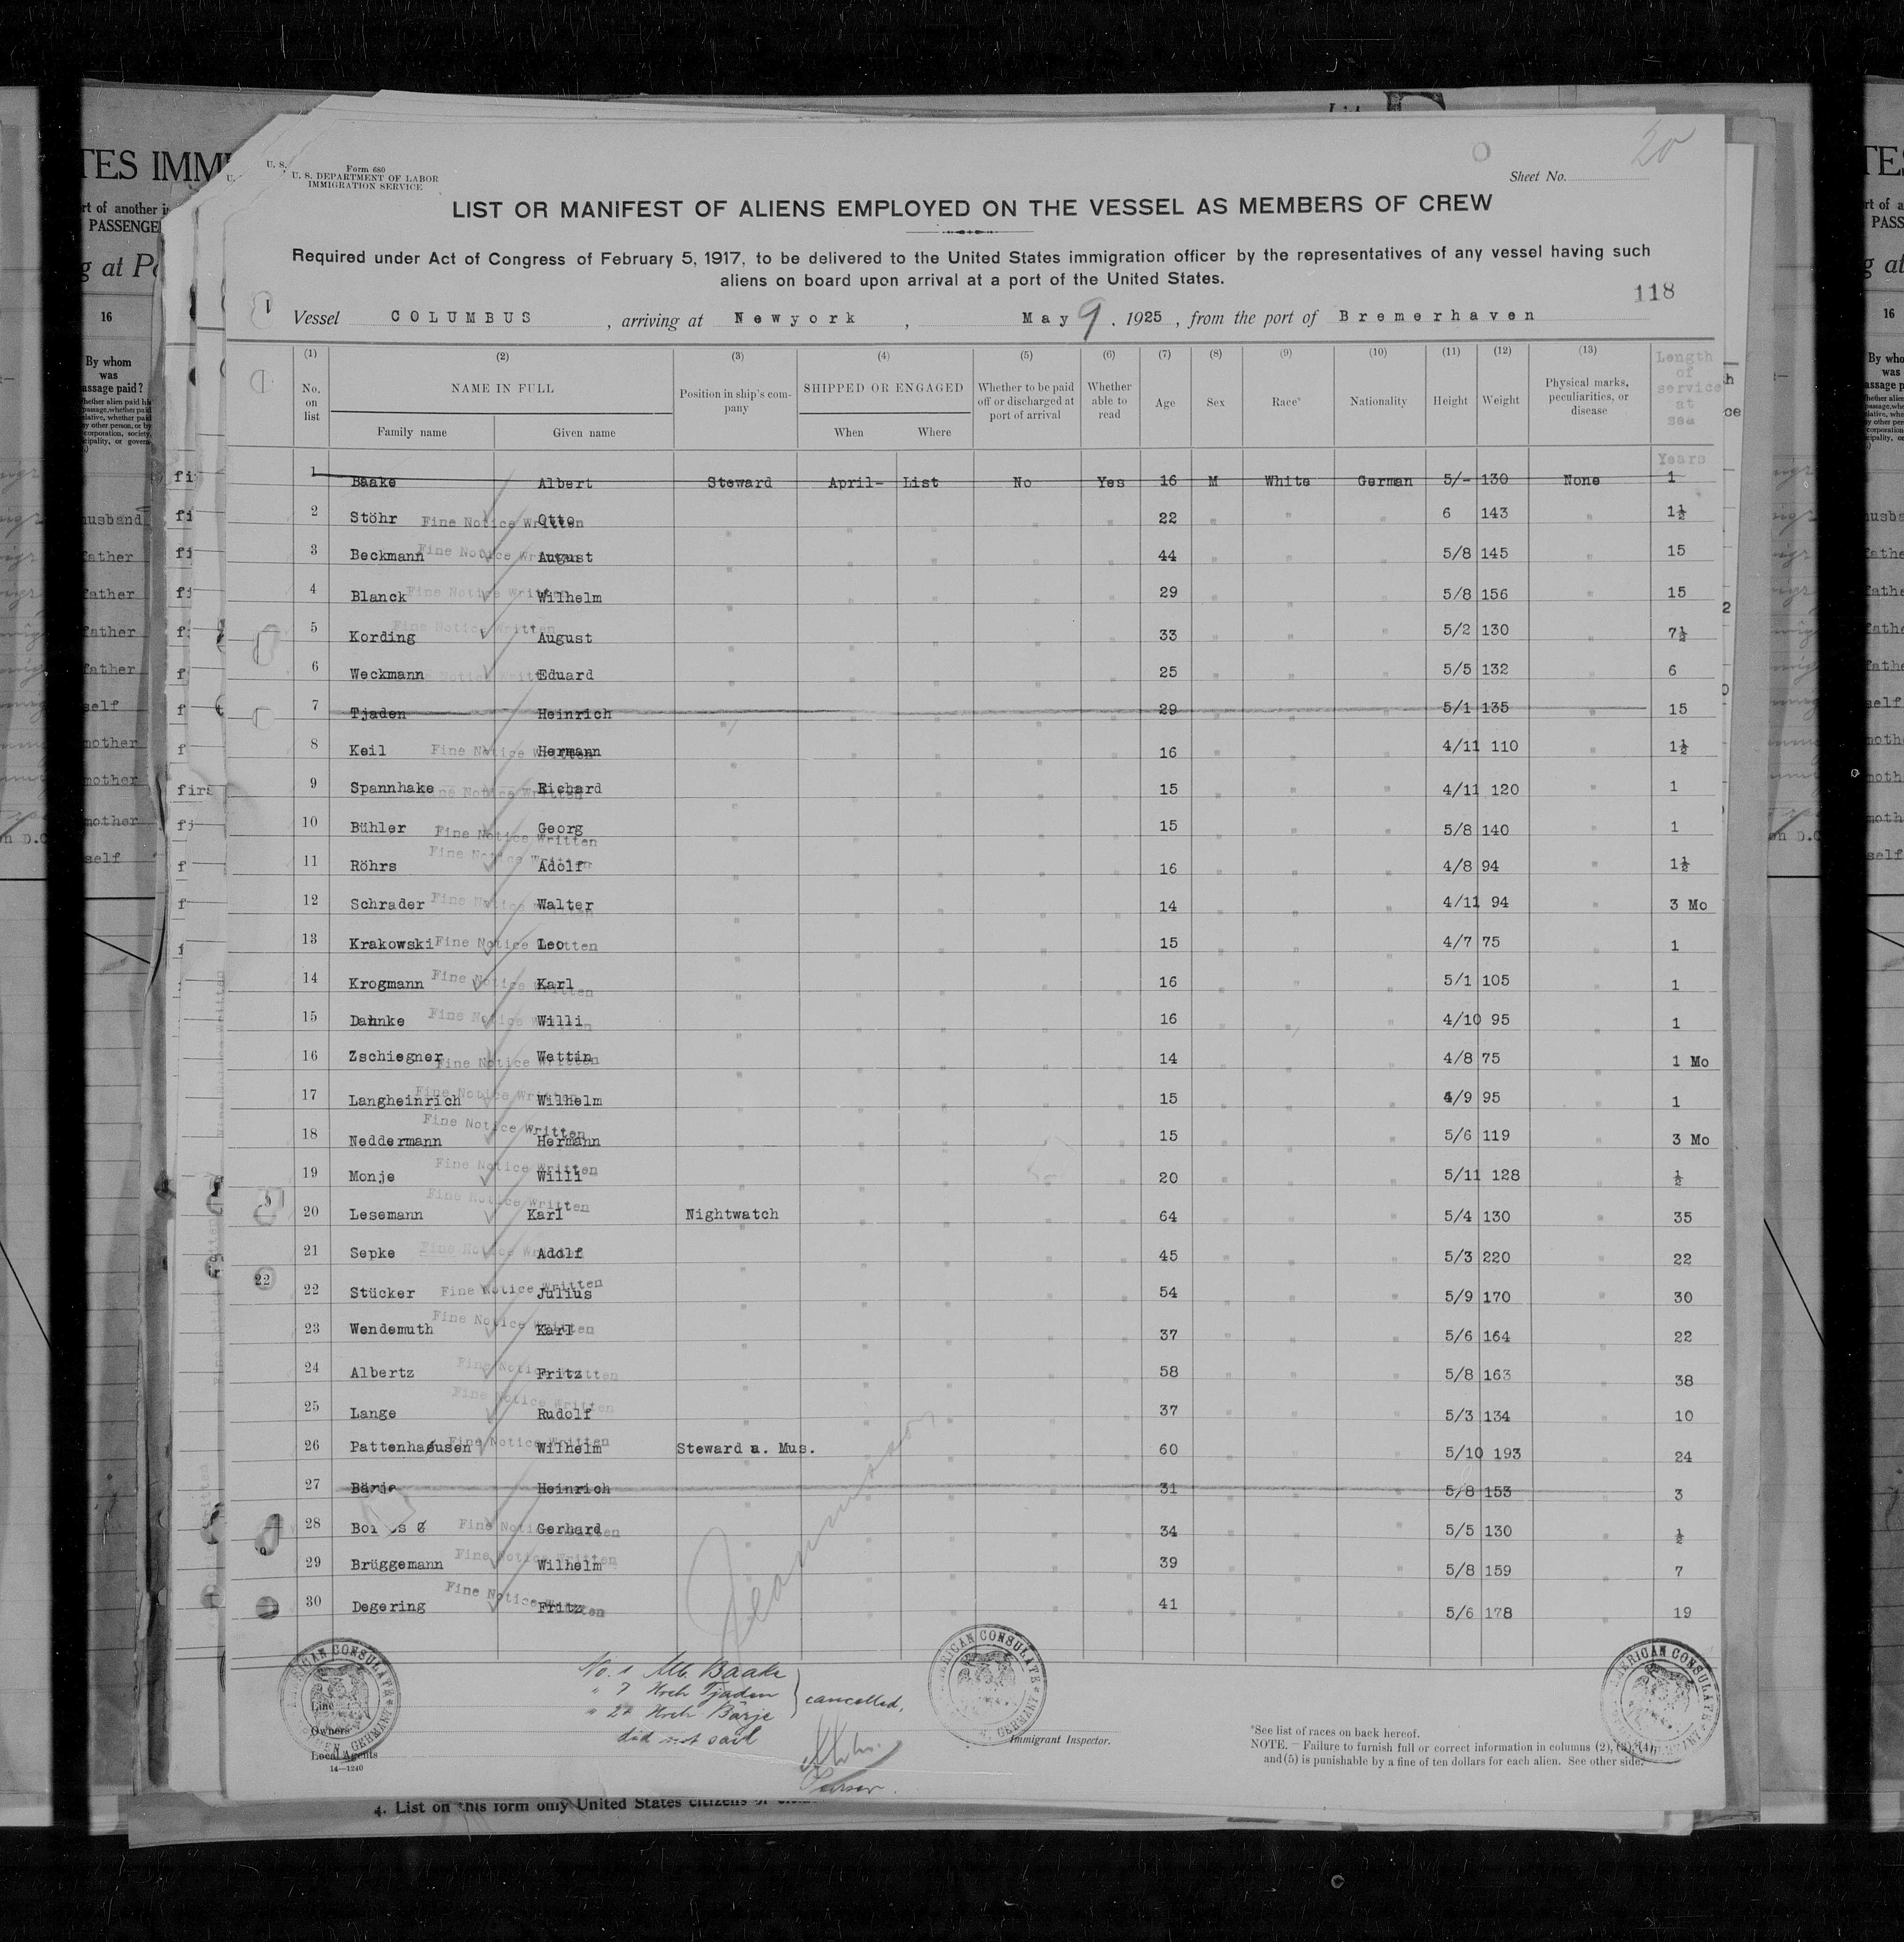 Form 680
U. S. DEPARTMENT OF LABOR
IMMIGRATION SERVICE
20
Sheet No.
LIST OR MANIFEST OF ALIENS EMPLOYED ON THE VESSEL AS MEMBERS OF CREW
Required under Act of Congress of February 5, 1917, to be delivered to the United States immigration officer by the representatives of any vessel having such
aliens on board upon arrival at a port of the United States.
118
Vessel COLUMBUS, arriving at Newyork, May 9. 1925, from the port of Bremerhaven
(1) (2) (3) (4) (5) (6) (7) (8) (9) (10) (11) (12) (13)
No. on list NAME IN FULL Family name Given name Position in ship's company SHIPPED OR ENGAGED When Where Whether to be paid off or discharged at port of arrival Whether able to read Age Sex Race* Nationality Height Weight Physical marks, peculiarities, or disease Length of service at sea
Years
1 Baake Albert Steward April- List No Yes 16 M White German 5/- 130 None 1
2 Stöhr Fine Notice Written Otto 22 " " " 6 143 " 1½
3 Beckmann Fine Notice Written August 44 5/8 145 15
4 Blanck Fine Notice Written Wilhelm 29 5/8 156 15
5 Kording Fine Notice Written August 33 5/2 130 7½
6 Weckmann Fine Notice Written Eduard 25 5/5 132 6
7 Tjaden Heinrich 29 5/1 135 15
8 Keil Fine Notice Written Hermann 16 4/11 110 1½
9 Spannhake Fine Notice Written Richard 15 4/11 120 1
10 Bühler Fine Notice Written Georg 15 5/8 140 1
11 Röhrs Fine Notice Written Adolf 16 4/8 94 1½
12 Schrader Fine Notice Written Walter 14 4/11 94 3 Mo
13 Krakowski Fine Notice Written Leo 15 4/7 75 1
14 Krogmann Fine Notice Written Karl 16 5/1 105 1
15 Dahnke Fine Notice Written Willi 16 4/10 95 1
16 Zschiegner Fine Notice Written Wettin 14 4/8 75 1 Mo
17 Langheinrich Fine Notice Written Wilhelm 15 4/9 95 1
18 Neddermann Fine Notice Written Hermann 15 5/6 119 3 Mo
19 Monje Fine Notice Written Willi 20 5/11 128 ½
20 Lesemann Fine Notice Written Karl Nightwatch 64 5/4 130 35
21 Sepke Fine Notice Written Adolf 45 5/3 220 22
22 Stücker Fine Notice Written Julius 54 5/9 170 30
23 Wendemuth Fine Notice Written Karl 37 5/6 164 22
24 Albertz Fine Notice Written Fritz 58 5/8 163 38
25 Lange Fine Notice Written Rudolf 37 5/3 134 10
26 Pattenhausen Fine Notice Written Wilhelm Steward a. Mus. 60 5/10 193 24
27 Bärje Heinrich 31 5/8 153 3
28 Fine Notice Written Gerhard 34 5/5 130 ½
29 Brüggemann Fine Notice Written Wilhelm 39 5/8 159 7
30 Degering Fine Notice Written Fritz 41 5/6 178 19
No. 1 Alb. Baake
" 7 Hch Tjaden
" 27 Hch Bärje
cancelled,
did not sail
Purser.
AMERICAN CONSULATE
GERMANY
AMERICAN CONSULATE
GERMANY
AMERICAN CONSULATE
Line
Owners
Local Agents
14—1240
Immigrant Inspector.
*See list of races on back hereof.
NOTE. — Failure to furnish full or correct information in columns (2), (3), (4),
and (5) is punishable by a fine of ten dollars for each alien. See other side.
4. List on this form only United States citizens
TES IMM
rt of another
PASSENGE
g at Po
16
By whom
was
assage paid?
husband
father
father
father
father
self
mother
mother
mother
self